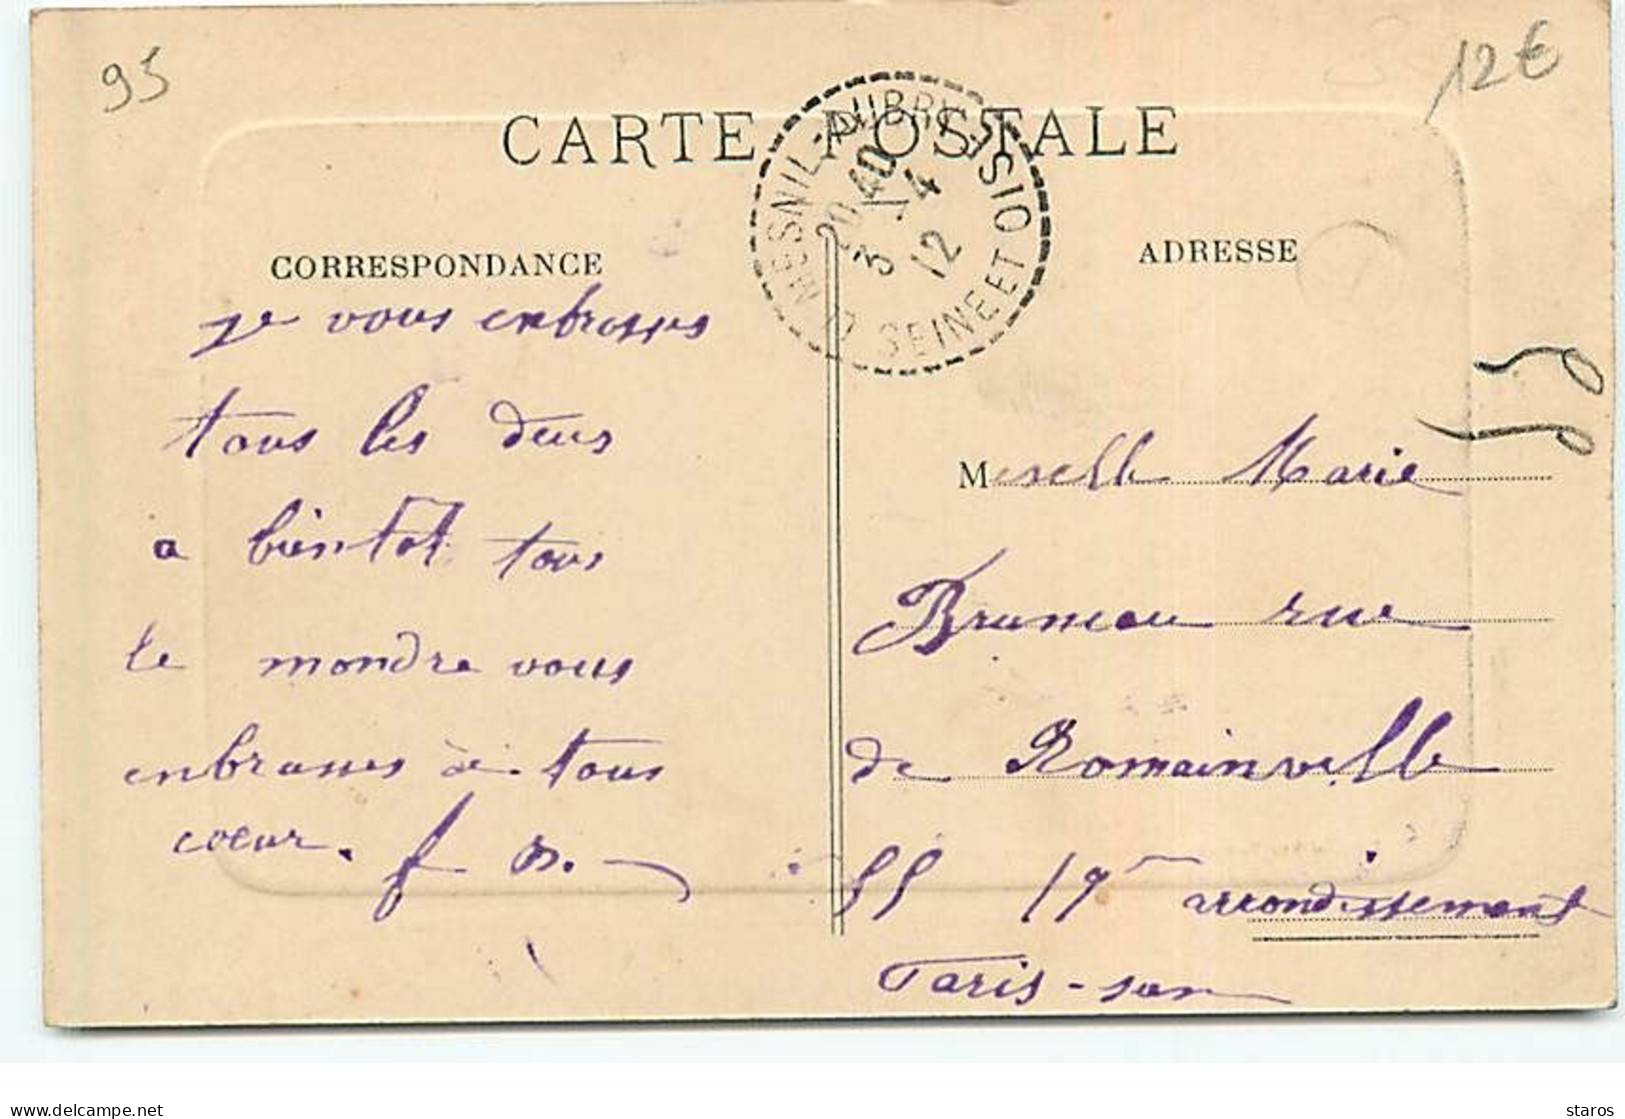 95
12€
CARTE POSTALE
MESNIL-AUBRY
SEINE ET OISE
20 40
3 - 4
12
CORRESPONDANCE
ADRESSE
je vous enbrasses
tous les deus
a bientot tous
le mondre vous
enbrasses de tous
coeur.
Meselle Marie
Bruneau rue
de Romainville
55 19e arrondissement
Paris
delcampe.net
staros